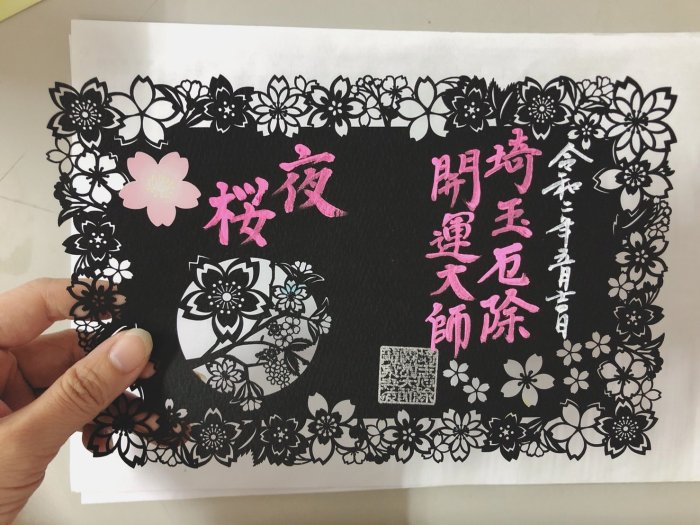 令和二年五月吉日
埼玉厄除
開運大師
夜
桜